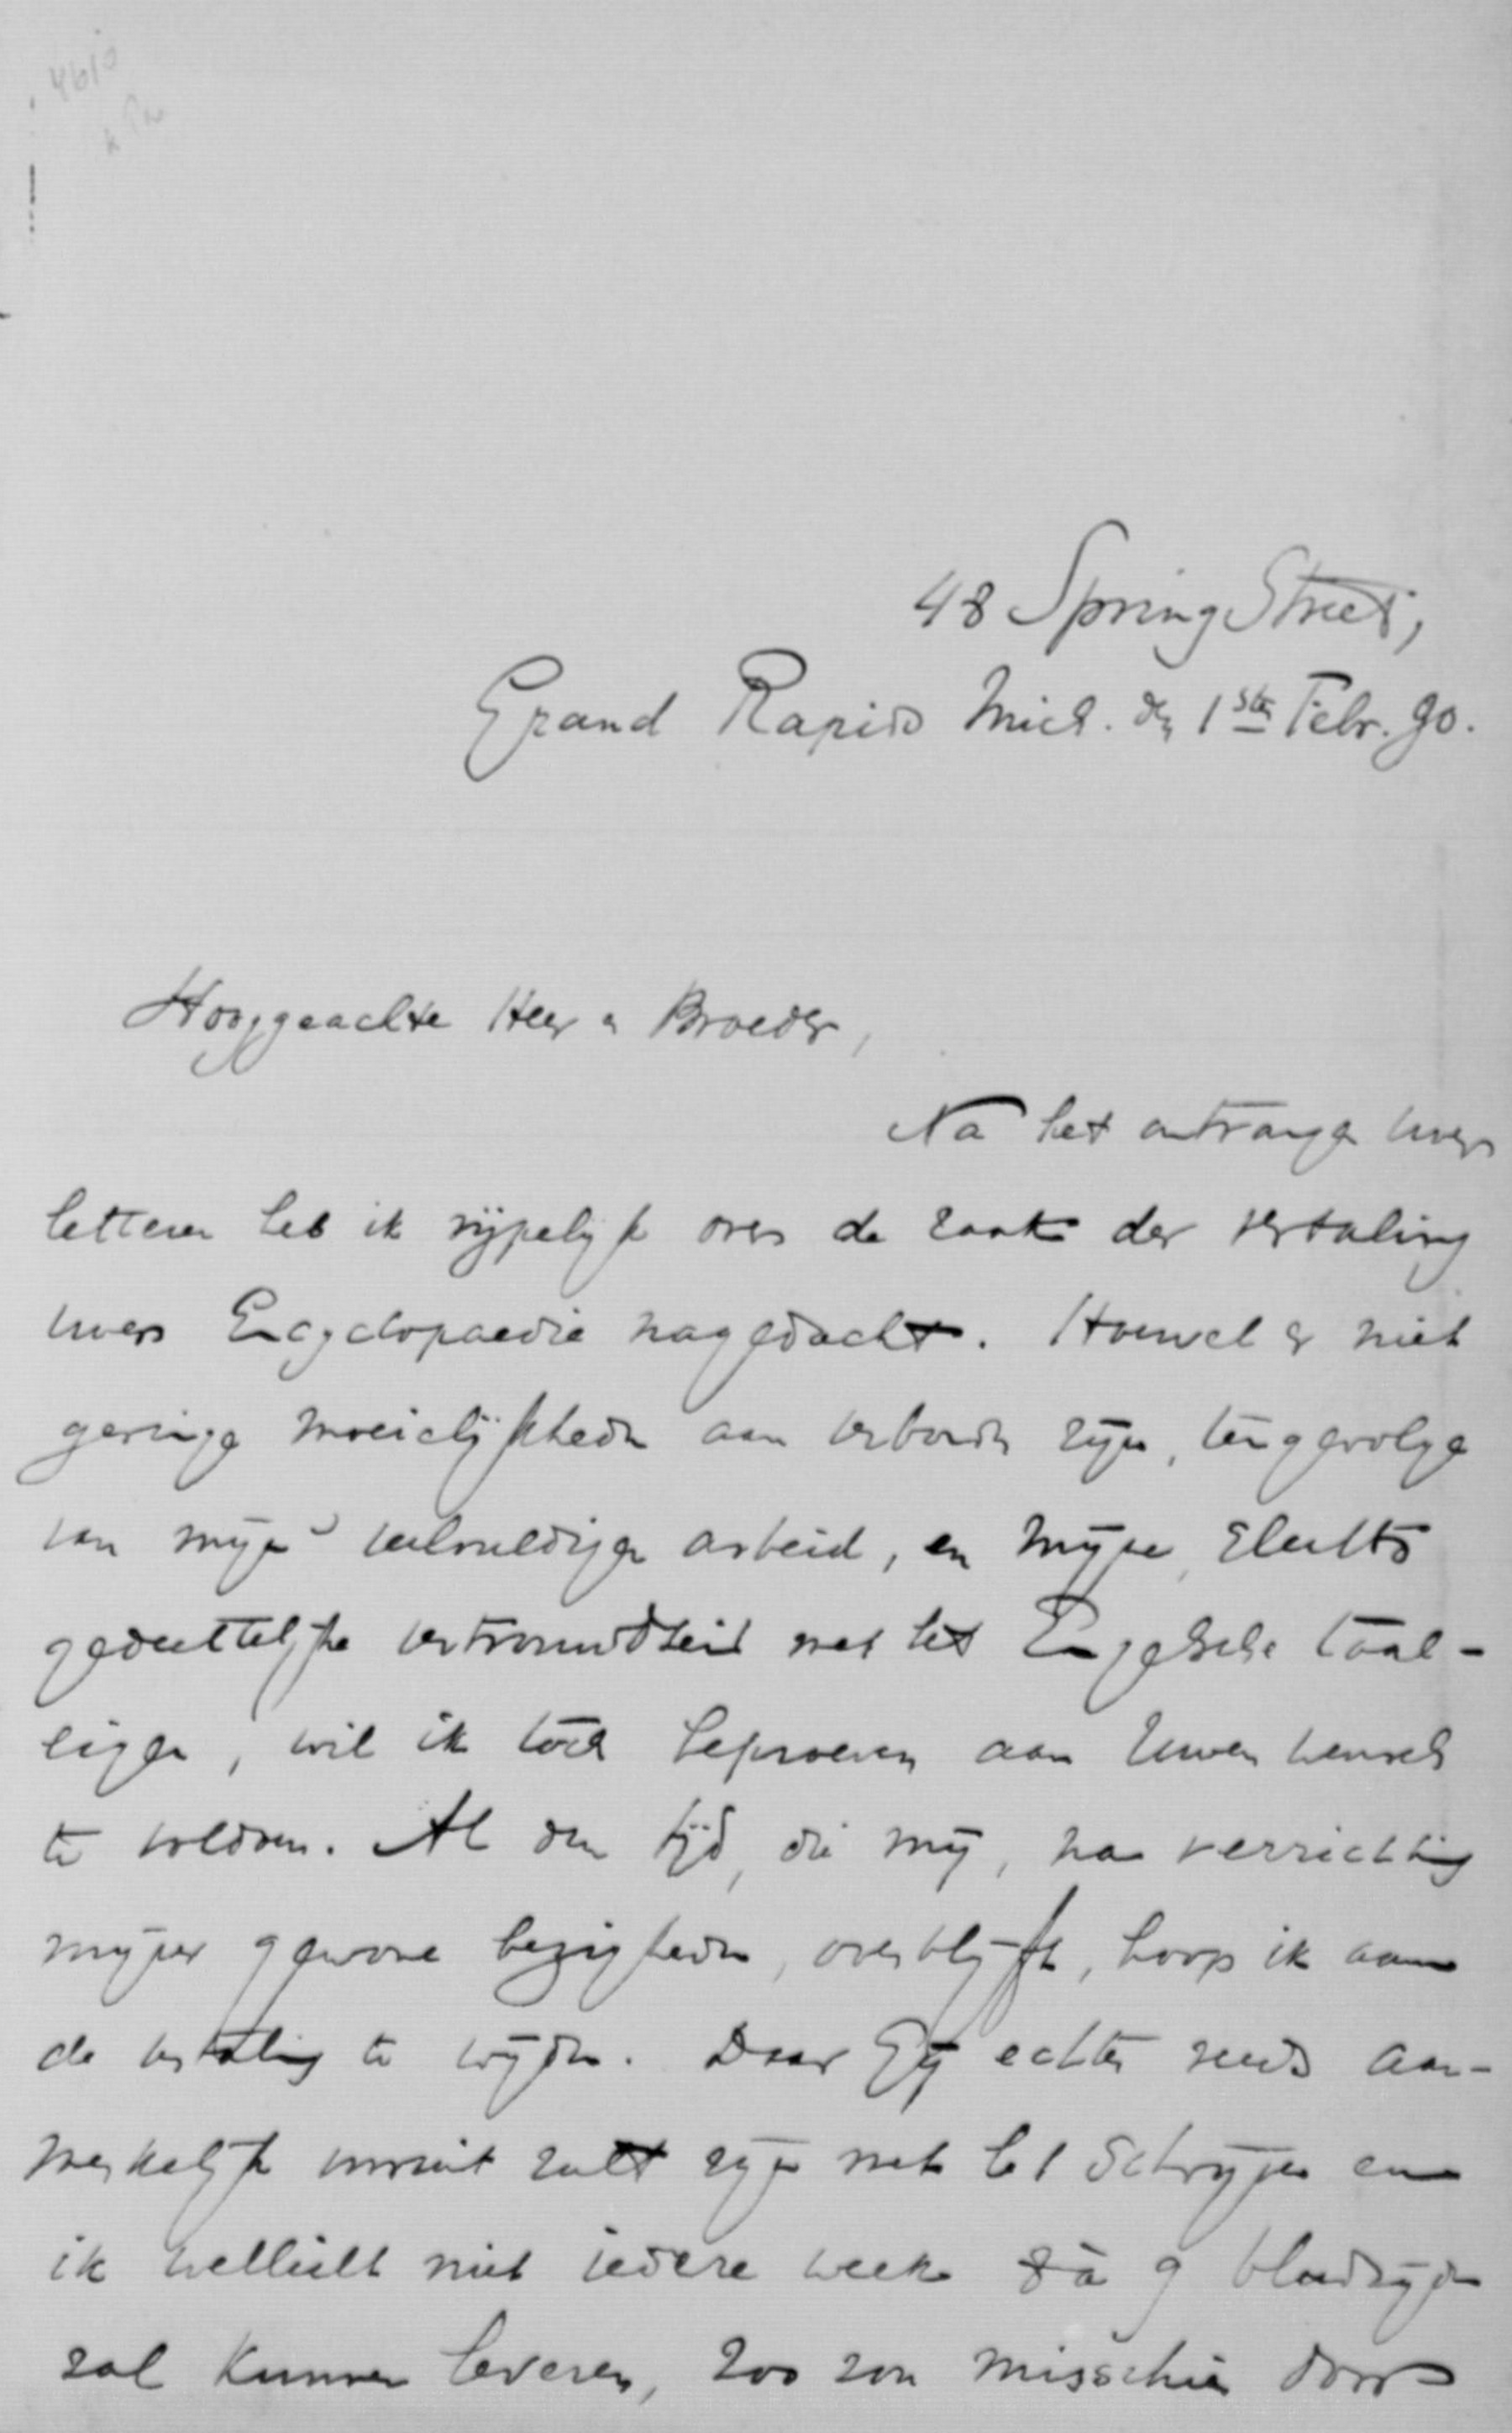 4610
48 Spring Street,
Grand Rapids Mich. den 1sten Febr. 90.
Hooggeachte Heer en Broeder,
Na het ontvangen uwer
letteren heb ik rijpelijk over de zaak der vertaling
uwer Encyclopaedie nagedacht. Hoewel er niet
geringe moeielijkheden aan verbonden zijn, tengevolge
van mijn veelvuldigen arbeid, en mijne slechts
gedeeltelijke vertrouwdheid met het Engelsche taal-
eigen, wil ik toch beproeven aan Uwen wensch
te voldoen. Al den tijd, die mij, na verrichting
mijner gewone bezigheden, overblijft, hoop ik aan
de vertaling te wijden. Daar Gij echter reeds aan-
merkelijk vooruit zult zijn met het schrijven en
ik wellicht niet iedere week 8 à 9 bladzijden
zal kunnen leveren, zoo zou misschien door